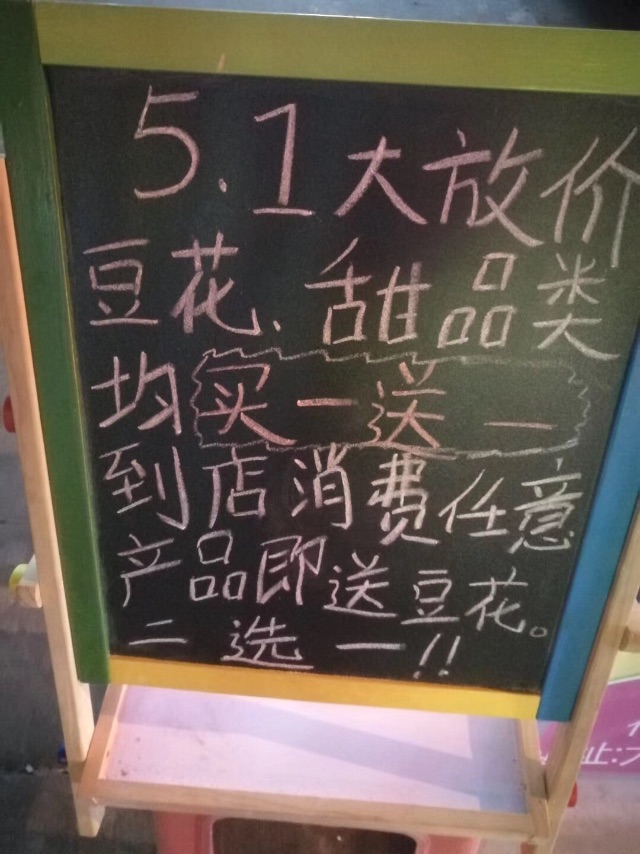 5.1大放价
豆花、甜品类
均买一送一
到店消费任意
产品即送豆花。
二选一!!
止: